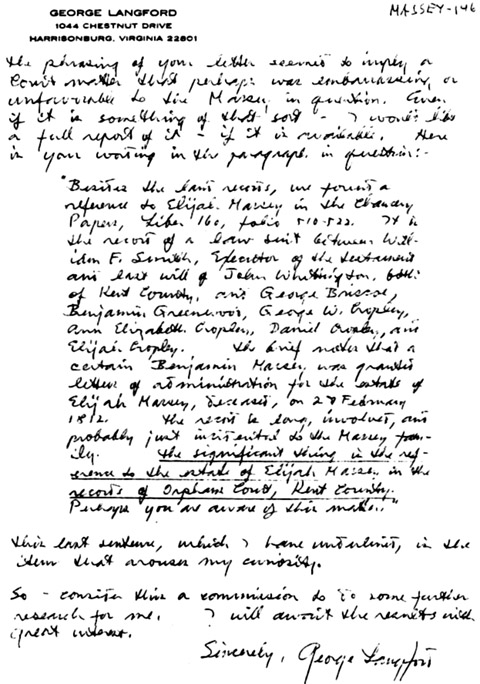 GEORGE LANGFORD
1044 CHESTNUT DRIVE
HARRISONBURG, VIRGINIA 22801
MASSEY-146
the phrasing of your letter seemed to imply a
Court matter that perhaps was embarrassing or
unfavourable to the Massey in question. Even
if it is something of that sort - I would like
a full report of it - if it is available. Here
is your wording in the paragraph in question:-
"Besides the land records, we found a
reference to Elijah Massey in the Chancery
Papers, Liber 160, folio 510-522. It is
the record of a law suit between Will-
iam F. Smith, Executor of the testament
and last will of John Whittington, both
of Kent County, and George Briscoe,
Benjamin Greenwood, George W. Cropley,
Ann Elizabeth Cropley, Daniel and
Elijah Cropley. The brief notes that a
certain Benjamin Massey was granted
letters of administration for the estate of
Elijah Massey, deceased, on 28 February
1812. The record is long, involved, and
probably just incidental to the Massey fam-
ily. The significant thing is the ref-
erence to the estate of Elijah Massey in the
records of Orphans Court, Kent County.
Perhaps you are aware of this matter."
This last sentence, which I have underlined, is the
item that arouses my curiosity.
So - consider this a commission to do some further
research for me. I will await the results with
great interest.
Sincerely, George Langford